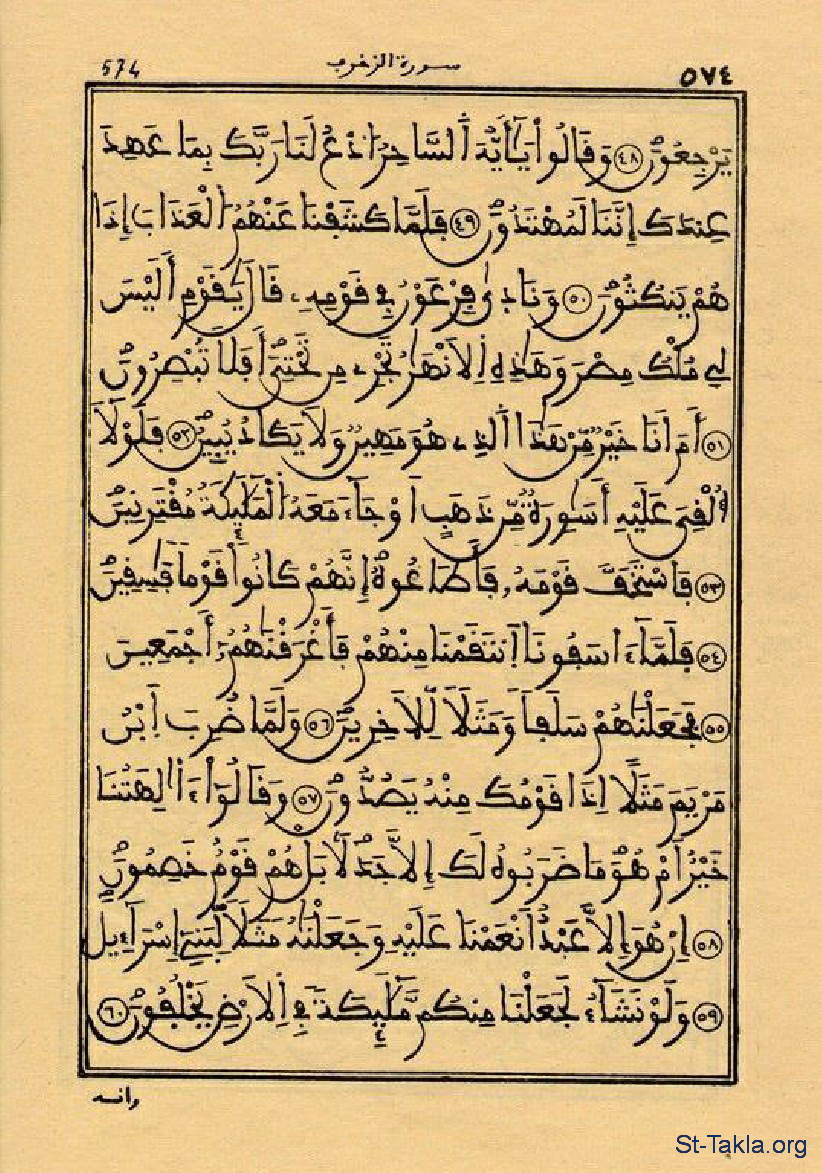 574 سورة الزخرف ٥٧٤
يَرْجِعُونَ ٤٨ وَقَالُوا۟ يَٰٓأَيُّهَ اَ۬لسَّاحِرُ اُ۟دْعُ لَنَا رَبَّكَ بِمَا عَهِدَ
عِندَكَ إِنَّنَا لَمُهْتَدُونَ ٤٩ فَلَمَّا كَشَفْنَا عَنْهُمُ اُ۬لْعَذَابَ إِذَا
هُمْ يَنكُثُونَ ٥٠ وَنَادَىٰ فِرْعَوْنُ فِي قَوْمِهِۦ قَالَ يَٰقَوْمِ أَلَيْسَ
لِي مُلْكُ مِصْرَ وَهَٰذِهِ اِ۬لَانْهَٰرُ تَجْرِي مِن تَحْتِيَ أَفَلَا تُبْصِرُونَ
٥١ أَمَ اَنَا خَيْرٌ مِّنْ هَٰذَا اَ۬لذِي هُوَ مَهِينٌ وَلَا يَكَادُ يُبِينُ ٥٢ فَلَوْلَآ
أُلْقِيَ عَلَيْهِ أَسَٰوِرَةٌ مِّن ذَهَبٍ اَوْ جَآءَ مَعَهُ اُ۬لْمَلَٰٓئِكَةُ مُقْتَرِنِينَ
٥٣ فَاسْتَخَفَّ قَوْمَهُۥ فَأَطَاعُوهُ إِنَّهُمْ كَانُوا۟ قَوْماً فَٰسِقِينَ
٥٤ فَلَمَّآ ءَاسَفُونَا اَ۪نتَقَمْنَا مِنْهُمْ فَأَغْرَقْنَٰهُمُۥٓ أَجْمَعِينَ
٥٥ فَجَعَلْنَٰهُمْ سَلَفاً وَمَثَلًا لِّلَاخِرِينَ ٥٦ وَلَمَّا ضُرِبَ اَ۪بْنُ
مَرْيَمَ مَثَلًا اِذَا قَوْمُكَ مِنْهُ يَصُدُّونَ ٥٧ وَقَالُوٓا۟ ءَا۬لِهَتُنَا
خَيْرٌ اَمْ هُوَ مَا ضَرَبُوهُ لَكَ إِلَّا جَدَلًا بَلْ هُمْ قَوْمٌ خَصِمُونَ
٥٨ إِنْ هُوَ إِلَّا عَبْدٌ اَنْعَمْنَا عَلَيْهِ وَجَعَلْنَٰهُ مَثَلًا لِّبَنِيٓ إِسْرَآءِيلَ
٥٩ وَلَوْ نَشَآءُ لَجَعَلْنَا مِنكُم مَّلَٰٓئِكَةً فِي اِ۬لَارْضِ يَخْلُفُونَ ٦٠
وإنه
St-Takla.org